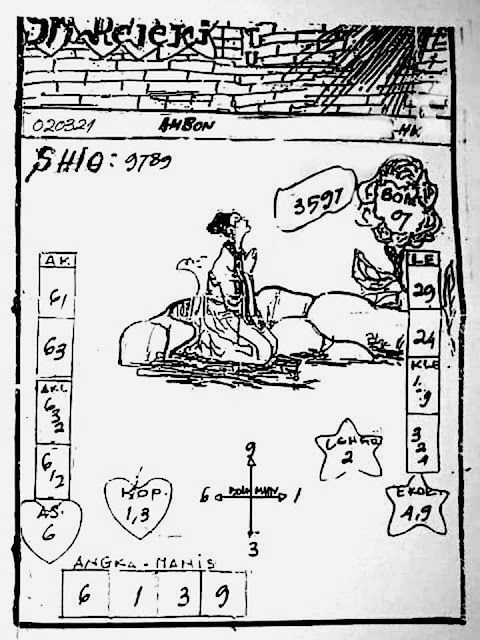 020321 AMBON HK
SHIO: 9789
3597
BOM
07
AK
61
63
AKL
6
3
2
6
1
2
AS
6
KOP.
1,3
9
6 POLA MAIN 1
3
2
LE
29
24
KLE
1
9
3
2
4
EKOR
4,9
ANGKA-MANIS
6 1 3 9